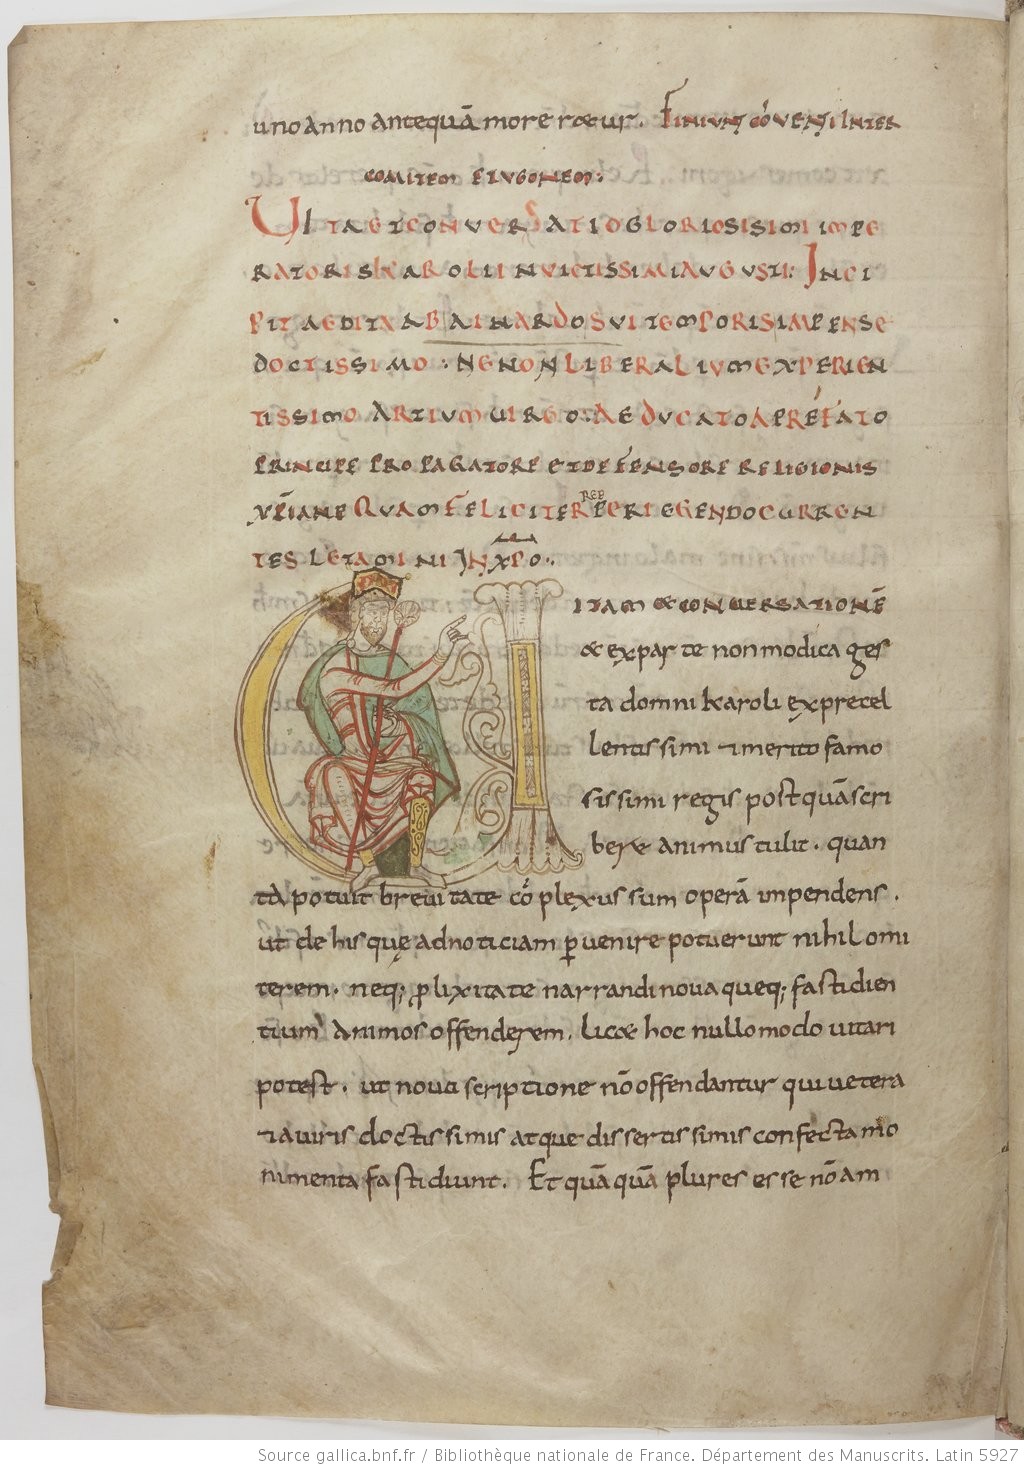 uno anno antequā moreretur. Finiunt cōventi inter
comitem et ugonem:
Vita et conversatio gloriosisimi impe
ratoris karoli invictissimi augusti: Inci
pit aedita ab ainardo sui temporis impense
doctissimo. Nenon liberalium experien
tissimo artium uiro. Aeducato a prefato
principe propagatore et defensore religionis
xp̄iane Quam feliciter perlegendo curren
rep
tes letamini in xp̄o.
itam & conuersationē
& ex parte non modica ges
ta domni karoli exprecel
lentissimi & merito famo
sissimi regis postquā scri
bere animus tulit. quan
ta potuit breuitate cōplexus sum operā inpendens.
ut de hisque ad noticiam ꝑuenire potuerunt nihil omi
terem. neq; ꝓlixitate narrandi noua queq; fastidien
tium animos offenderem. licet hoc nullo modo uitari
potest. ut noua scriptione nō offendantur qui uetera
& a uiris doctissimis atque dissertissimis confecta mo
nimenta fastidiunt. Et quāquā plures esse nō am
Source gallica.bnf.fr / Bibliothèque nationale de France. Département des Manuscrits. Latin 5927